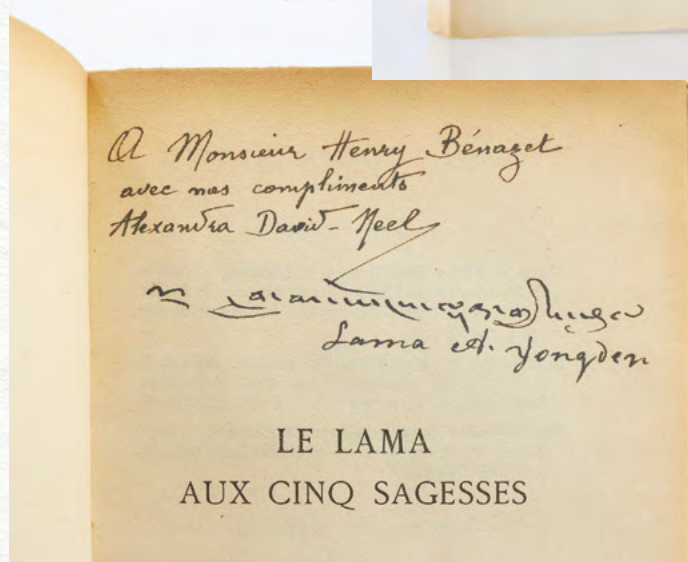 A Monsieur Henry Bénazet
avec nos compliments
Alexandra David-Neel
Lama A. Yongden
LE LAMA
AUX CINQ SAGESSES